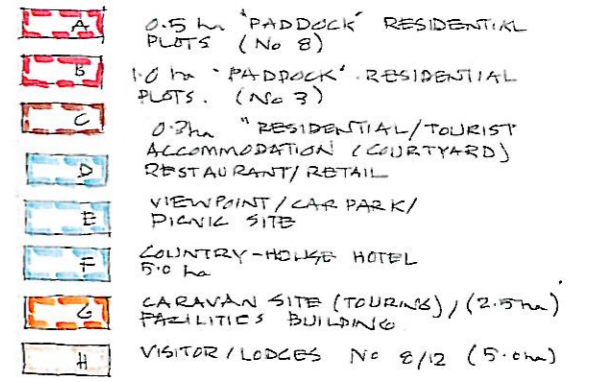 A 0.5 ha 'PADDOCK' RESIDENTIAL
PLOTS (No 8)
B 1.0 ha 'PADDOCK' RESIDENTIAL
PLOTS. (No 3)
C "RESIDENTIAL/TOURIST
ACCOMMODATION (COURTYARD)
D RESTAURANT/RETAIL
E VIEWPOINT/CAR PARK/
PICNIC SITE
F COUNTRY-HOUSE HOTEL
5.0 ha
G CARAVAN SITE (TOURING)/(2.5ha)
FACILITIES BUILDING
H VISITOR/LODGES No 8/12 (5.0ha)